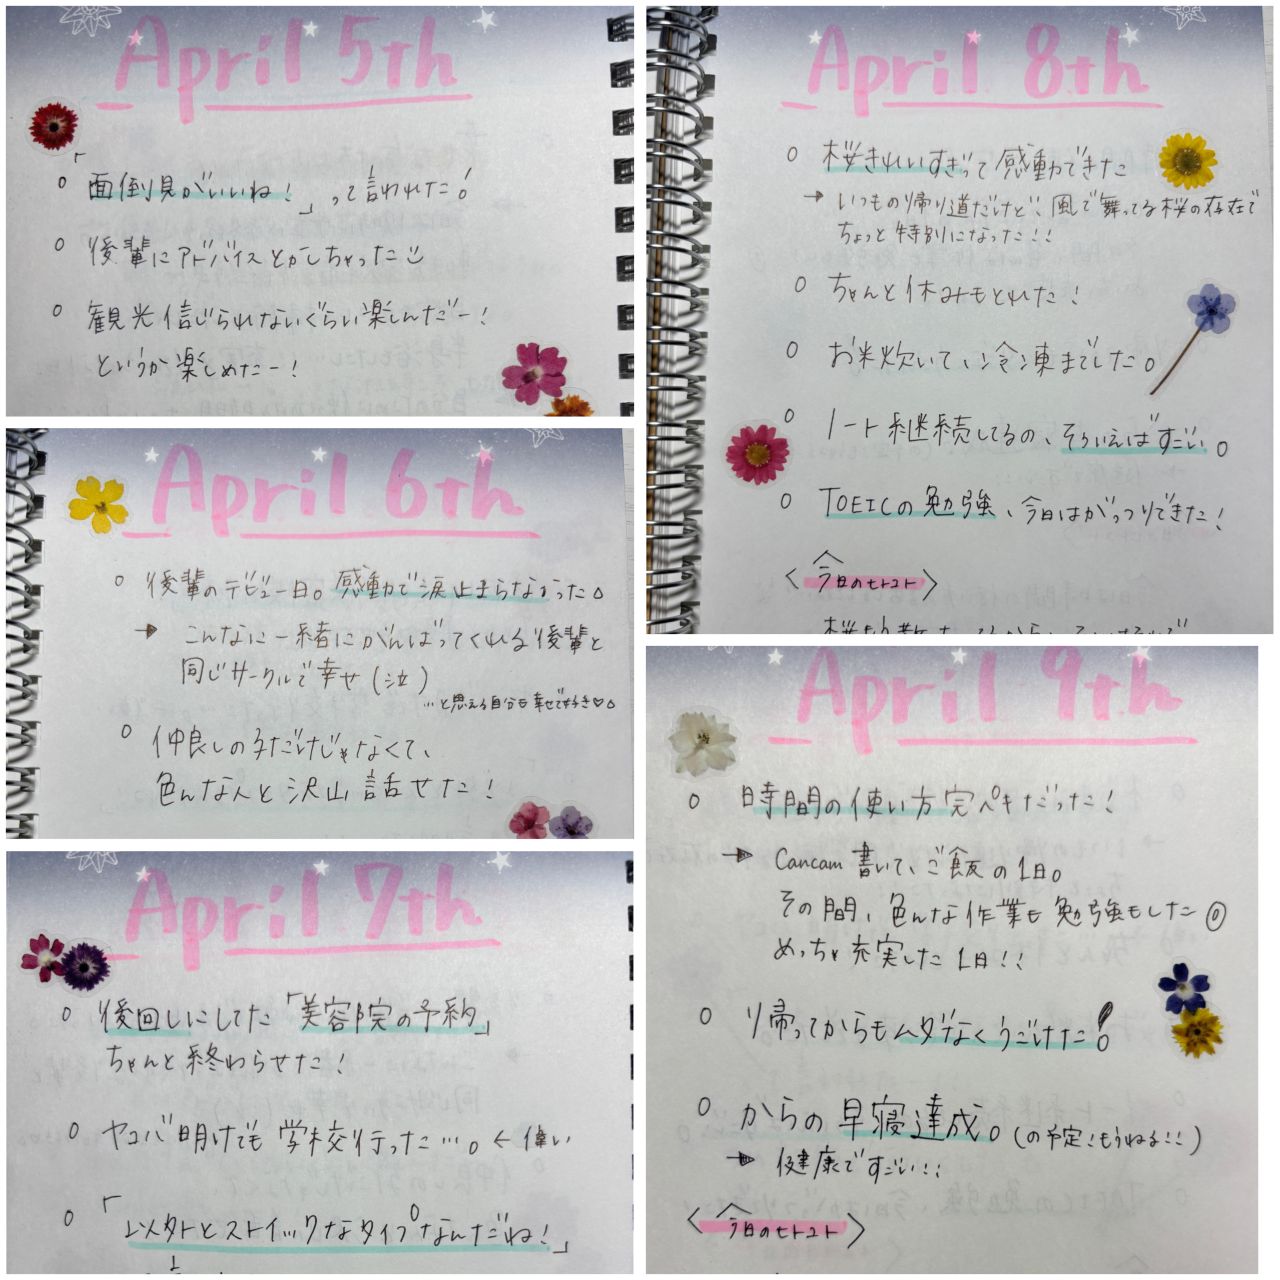 April 5th
「面倒見がいいね!」って言われた!
後輩にアドバイスとかしちゃった
観光信じられないぐらい楽しんだー!
というか楽しめたー!
April 6th
後輩のデビュー日。感動で涙止まらなかった
→ こんなに一緒にがんばってくれる後輩と
同じサークルで幸せ(泣)
…と思える自分も幸せで好き♡
仲良しの子だけじゃなくて、
色んな人と沢山話せた!
April 7th
後回しにしてた「美容院の予約」
ちゃんと終わらせた!
ヤコバ明けでも学校行った…。←偉い
「以外とストイックなタイプなんだね!」
April 8th
桜きれいすぎって感動できた
→ いつもの帰り道だけど、風で舞ってる桜の存在で
ちょっと特別になった!!
ちゃんと休みもとれた!
お米炊いて、冷凍までした。
ノート継続してるの、そういえばすごい。
TOEICの勉強、今日はがっつりできた!
〈今日のヒトコト〉
April 9th
時間の使い方完ペキだった!
→ Cancam書いて、ご飯の1日。
その間、色んな作業も勉強もした
めっちゃ充実した1日!!
帰ってからもムダなくうごけた!
からの早寝達成。(の予定!もうねる!!)
→ 健康ですごい!!
〈今日のヒトコト〉